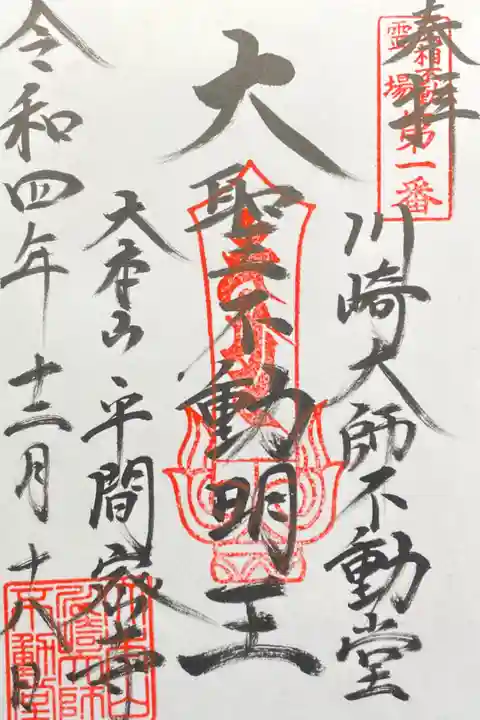 奉拝
武相不動
霊場
第一番
川崎大師不動堂
大聖不動明王
大本山平間寺
令和四年十二月十八日